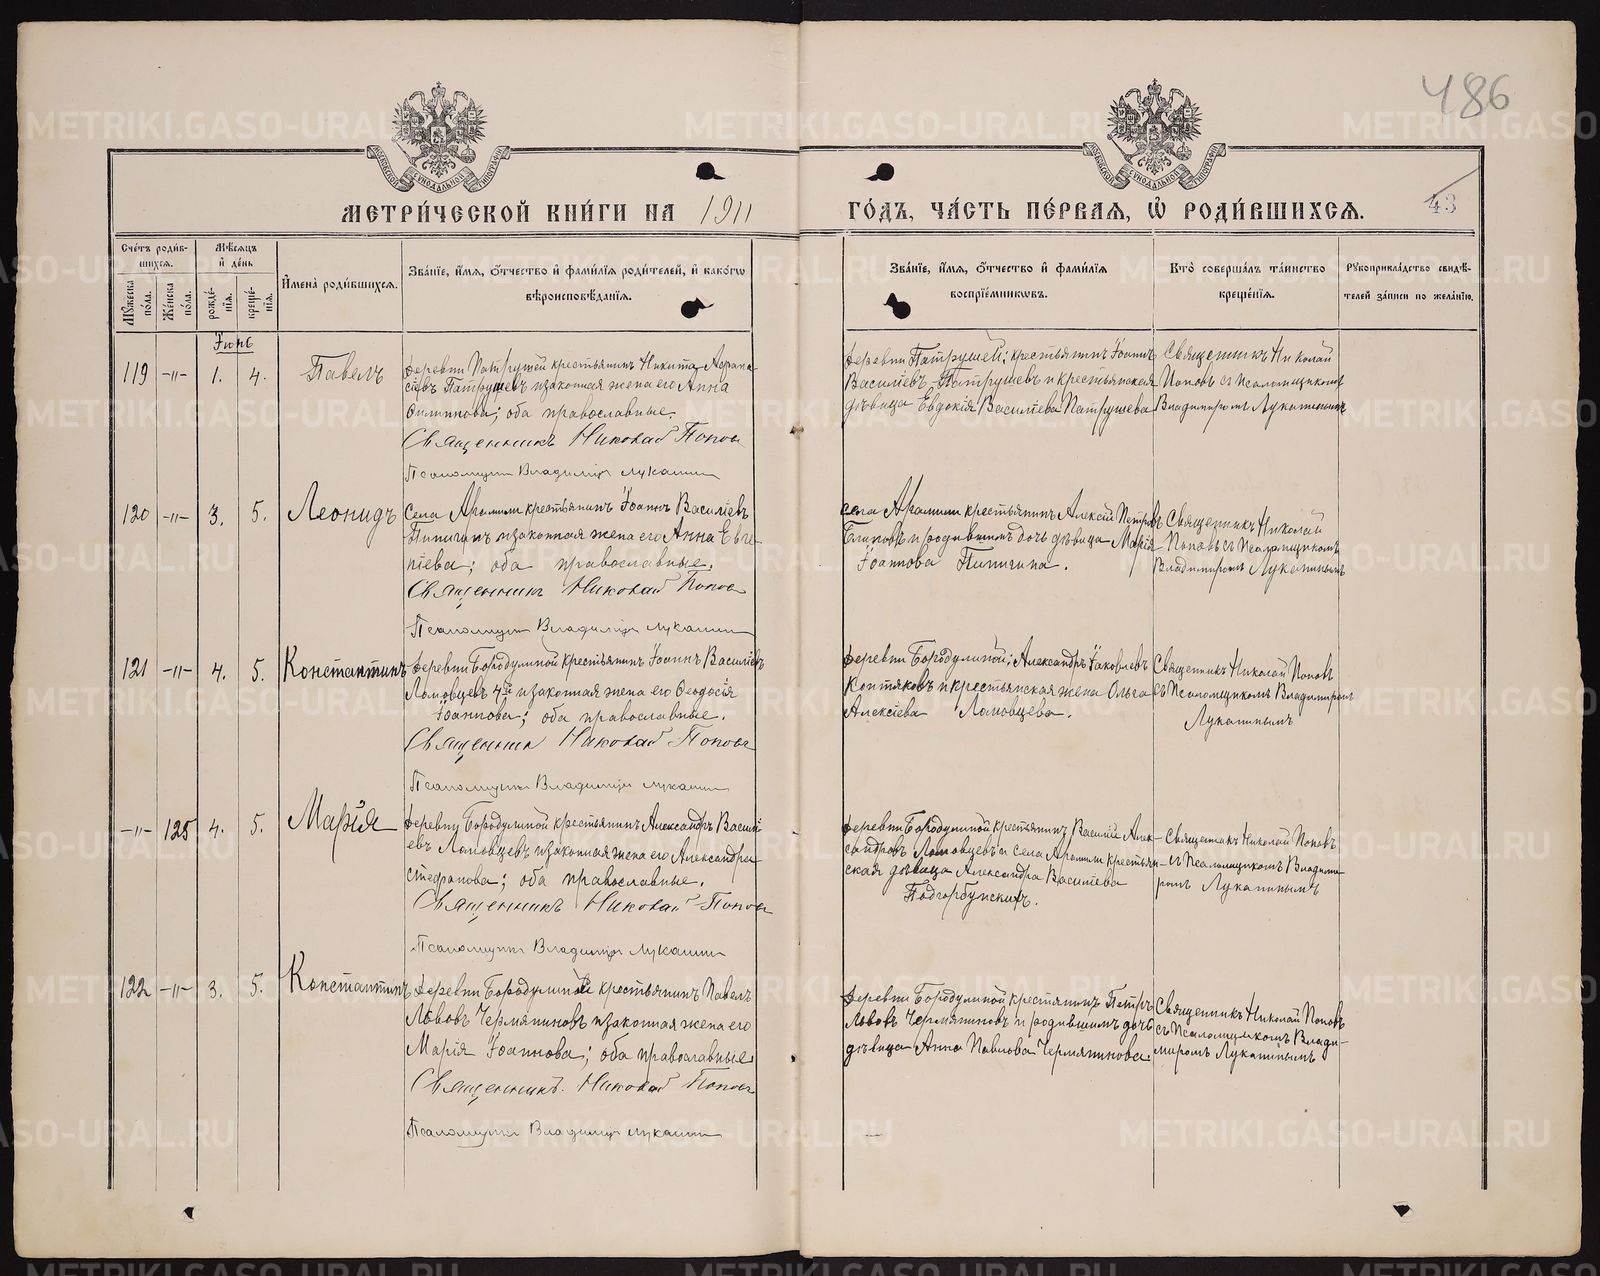 486
МЕТРИ́ЧЕСКОЙ КНИ́ГИ НА 1911 ГО́ДЪ, ЧА́СТЬ ПЕ́РВАЯ, Ѡ҆ РОДИ́ВШИХСЯ.
43
Сче́тъ роди́в-
шихся.
Мꙋ́жеска
по́ла.
Же́нска
по́ла.
Мѣ́сяцъ
и҆ де́нь
рожде́-
нїя.
креще́-
нїя.
И҆мена̀ роди́вшихся.
Зва́нїе, и҆́мя, ѻ҆́тчество и҆ фами́лїя роди́телей, и҆ како́гѡ
вѣроисповѣ́данїя.
Зва́нїе, и҆́мя, ѻ҆́тчество и҆ фами́лїя
воспрїе́мникѡвъ.
Кто̀ соверша́лъ та́инство
креще́нїя.
Рꙋкоприкла́дство свидѣ́-
телей за́писи по жела́нїю.
Іюнь
119 -"- 1. 4. Павелъ
деревни Патрушей крестьянинъ Никита Афана-
сіевъ Патрушевъ и законная жена его Анна
Филиппова; оба православные.
Священникъ Николай Поповъ
Псаломщикъ Владиміръ Лукатинъ
деревни Патрушей; крестьянинъ Іоаннъ
Василіевъ Патрушевъ и крестьянская
дѣвица Евдокія Василіева Патрушева
Священникъ Николай
Поповъ съ Псаломщикомъ
Владиміромъ Лукатинымъ
120 -"- 3. 5. Леонидъ
Села Арамили крестьянинъ Іоаннъ Василіевъ
Пинигинъ и законная жена его Анна Евге-
ніева; оба православные.
Священникъ Николай Поповъ
Псаломщикъ Владиміръ Лукатинъ
села Арамили крестьянинъ Алексій Петровъ
Блиновъ и родившимъ дочь дѣвица Марія
Іоаннова Пинигина.
Священникъ Николай
Поповъ съ Псаломщикомъ
Владиміромъ Лукатинымъ
121 -"- 4. 5. Константинъ
деревни Бородулиной крестьянинъ Іоаннъ Василіевъ
Ломовцевъ 4й и законная жена его Феодосія
Іоаннова; оба православные.
Священникъ Николай Поповъ
Псаломщикъ Владиміръ Лукатинъ
деревни Бородулиной; Александръ Іаковлевъ
Коптяковъ и крестьянская жена Ольга
Алексіева Ломовцева.
Священникъ Николай Поповъ
съ Псаломщикомъ Владиміромъ
Лукатинымъ
-"- 125 4. 5. Марія
деревни Бородулиной крестьянинъ Александръ Василі-
евъ Ломовцевъ и законная жена его Александра
Стефанова; оба православные.
Священникъ Николай Поповъ
Псаломщикъ Владиміръ Лукатинъ
деревни Бородулиной крестьянинъ Василій Алек-
сандровъ Ломовцевъ и села Арамили крестьян-
ская дѣвица Александра Василіева
Подгорбунскихъ.
Священникъ Николай Поповъ
съ Псаломщикомъ Владимі-
ромъ Лукатинымъ
122 -"- 3. 5. Константинъ
деревни Бородулиной крестьянинъ Павелъ
Львовъ Чермяниновъ и законная жена его
Марія Іоаннова; оба православные
Священникъ Николай Поповъ
Псаломщикъ Владиміръ Лукатинъ
деревни Бородулиной крестянинъ Петръ
Львовъ Чермяниновъ и родившимъ дочь
дѣвица Анна Павлова Чермянинова.
Священникъ Николай Поповъ
съ Псаломщикомъ Влади-
міромъ Лукатинымъ